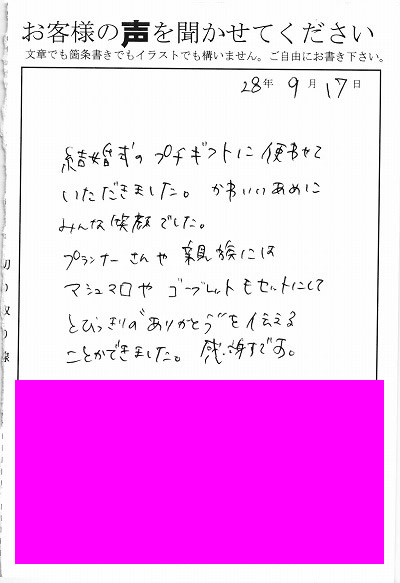 お客様の声を聞かせてください
文章でも箇条書きでもイラストでも構いません。ご自由にお書き下さい。
28年 9月 17日
結婚式のプチギフトに使わせて
いただきました。かわいいあめに
みんな笑顔でした。
プランナーさんや親族には
マシュマロやゴーブレットもセットにして
とびっきりの"ありがとう"を伝える
ことができました。感謝です。